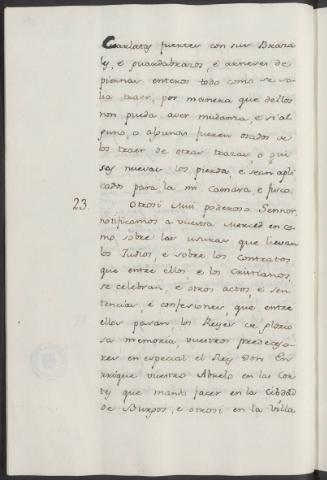 fuentes con sus Braza
les, e guardabrazos, e arneses de
piernas enteros todo como se so
lia traer, por manera que dellos
non pueda aver mudanza, e si al
guno, o algunas fueren osados de
los traer de otras trazas, o gui
sas nuevas los pierda, e sean apli
cados para la mi Camara, e fisco.
23. Otrosi Mui poderoso Sennor
notificamos a vuestra Merced en co
mo sobre las usuras que lievan
los Judios, e sobre los Contratos
que entre ellos, e los Cristianos,
se celebran, e otros actos, e sen
tencias, e confesiones que entre
ellos pasan, los Reyes de glorio
sa memoria, vuestros predeceso
res en especial el Rey Don En
rrique vuestro Abuelo en las Cor
tes que mandó facer en la Cibdad
de Burgos, e otrosi en la Villa